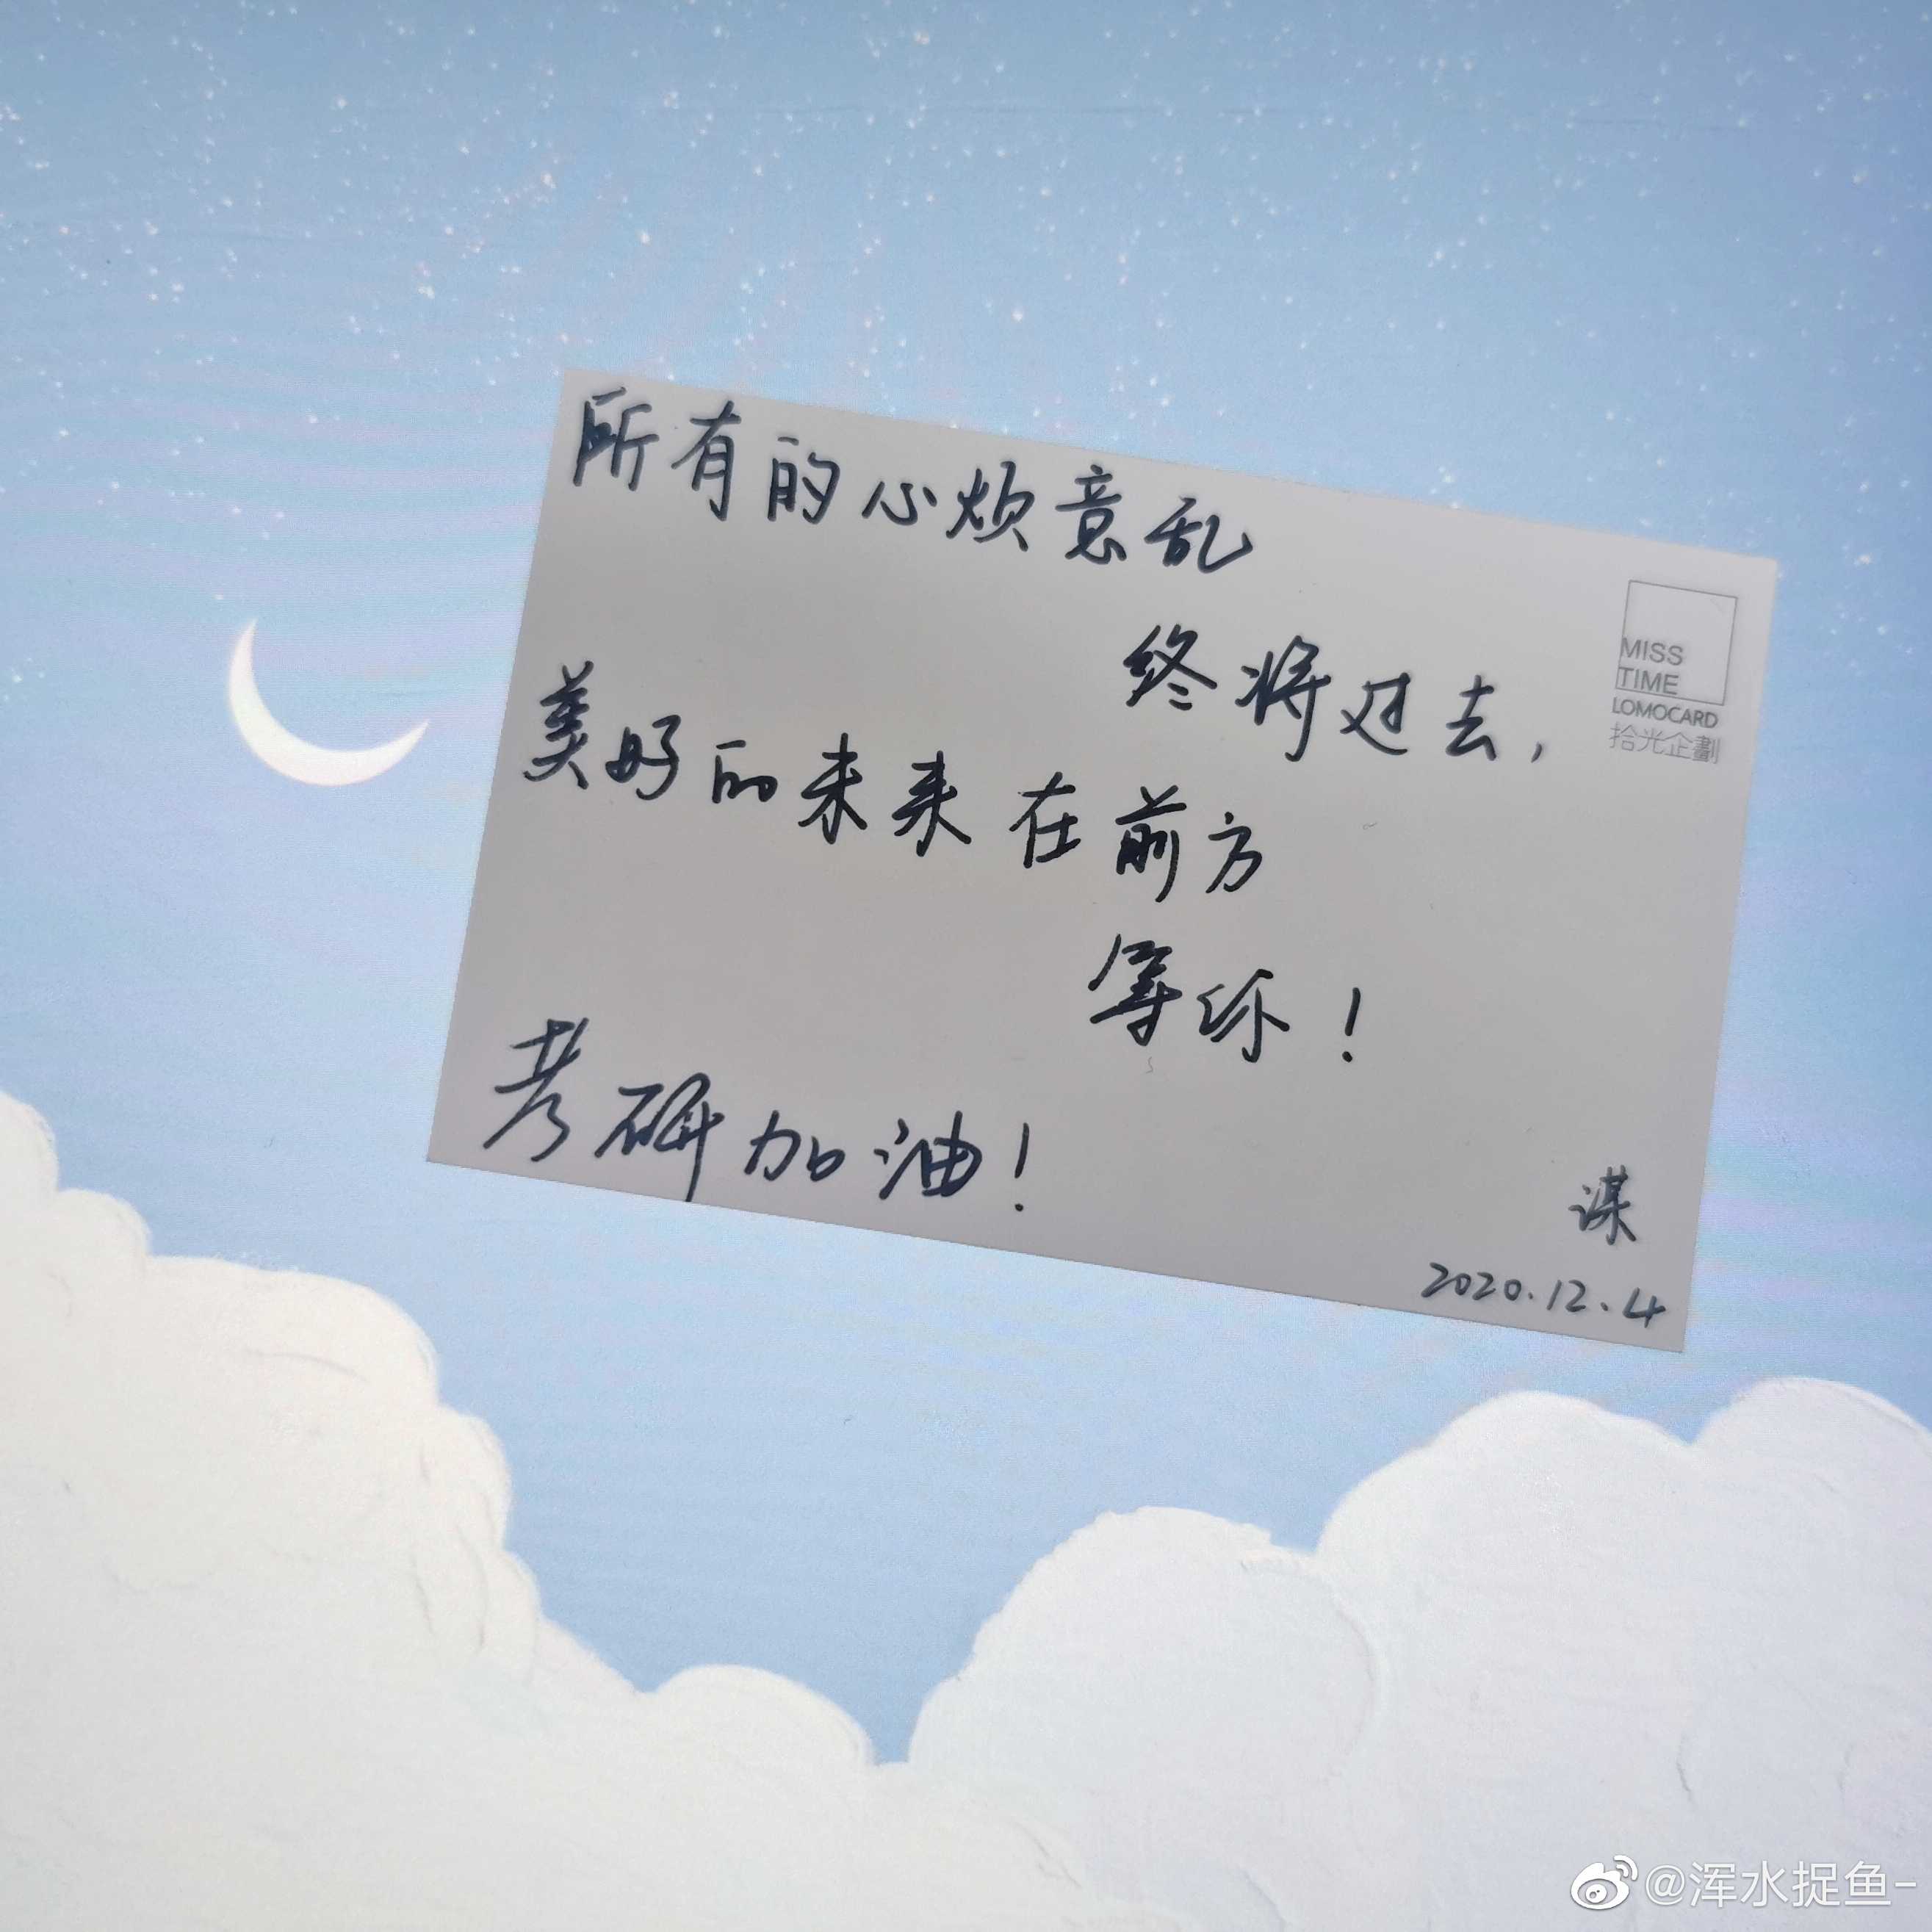 所有的心烦意乱
终将过去，
美好的未来在前方
等你！
考研加油！
谋
2020.12.4
MISS
TIME
LOMOCARD
拾光企劃
@浑水捉鱼-